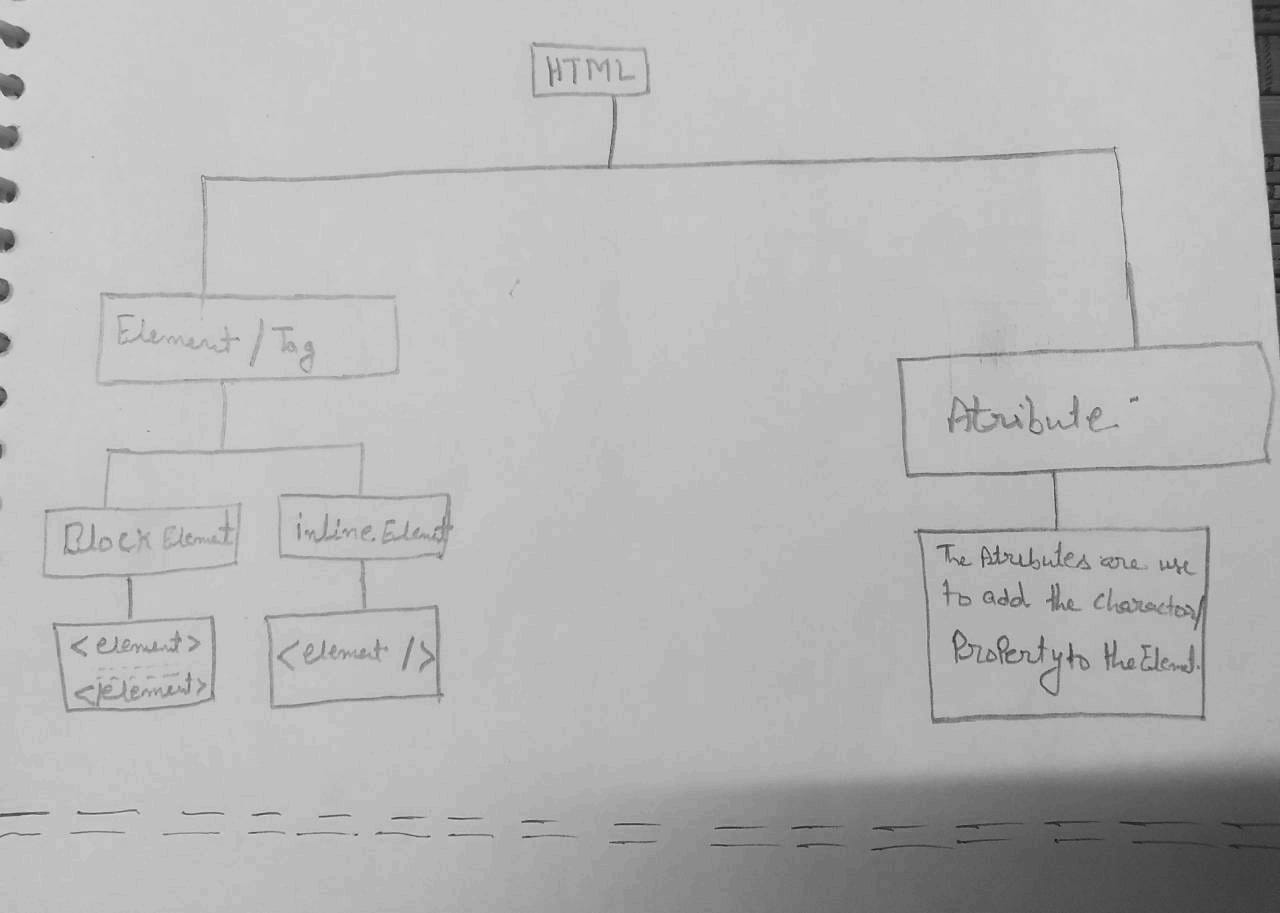 HTML
Element / Tag
Atribute
Block Elemet
inline Elemt
<element>
</element>
<element />
The Atributes are use
to add the charactor/
Property to the Elemet.